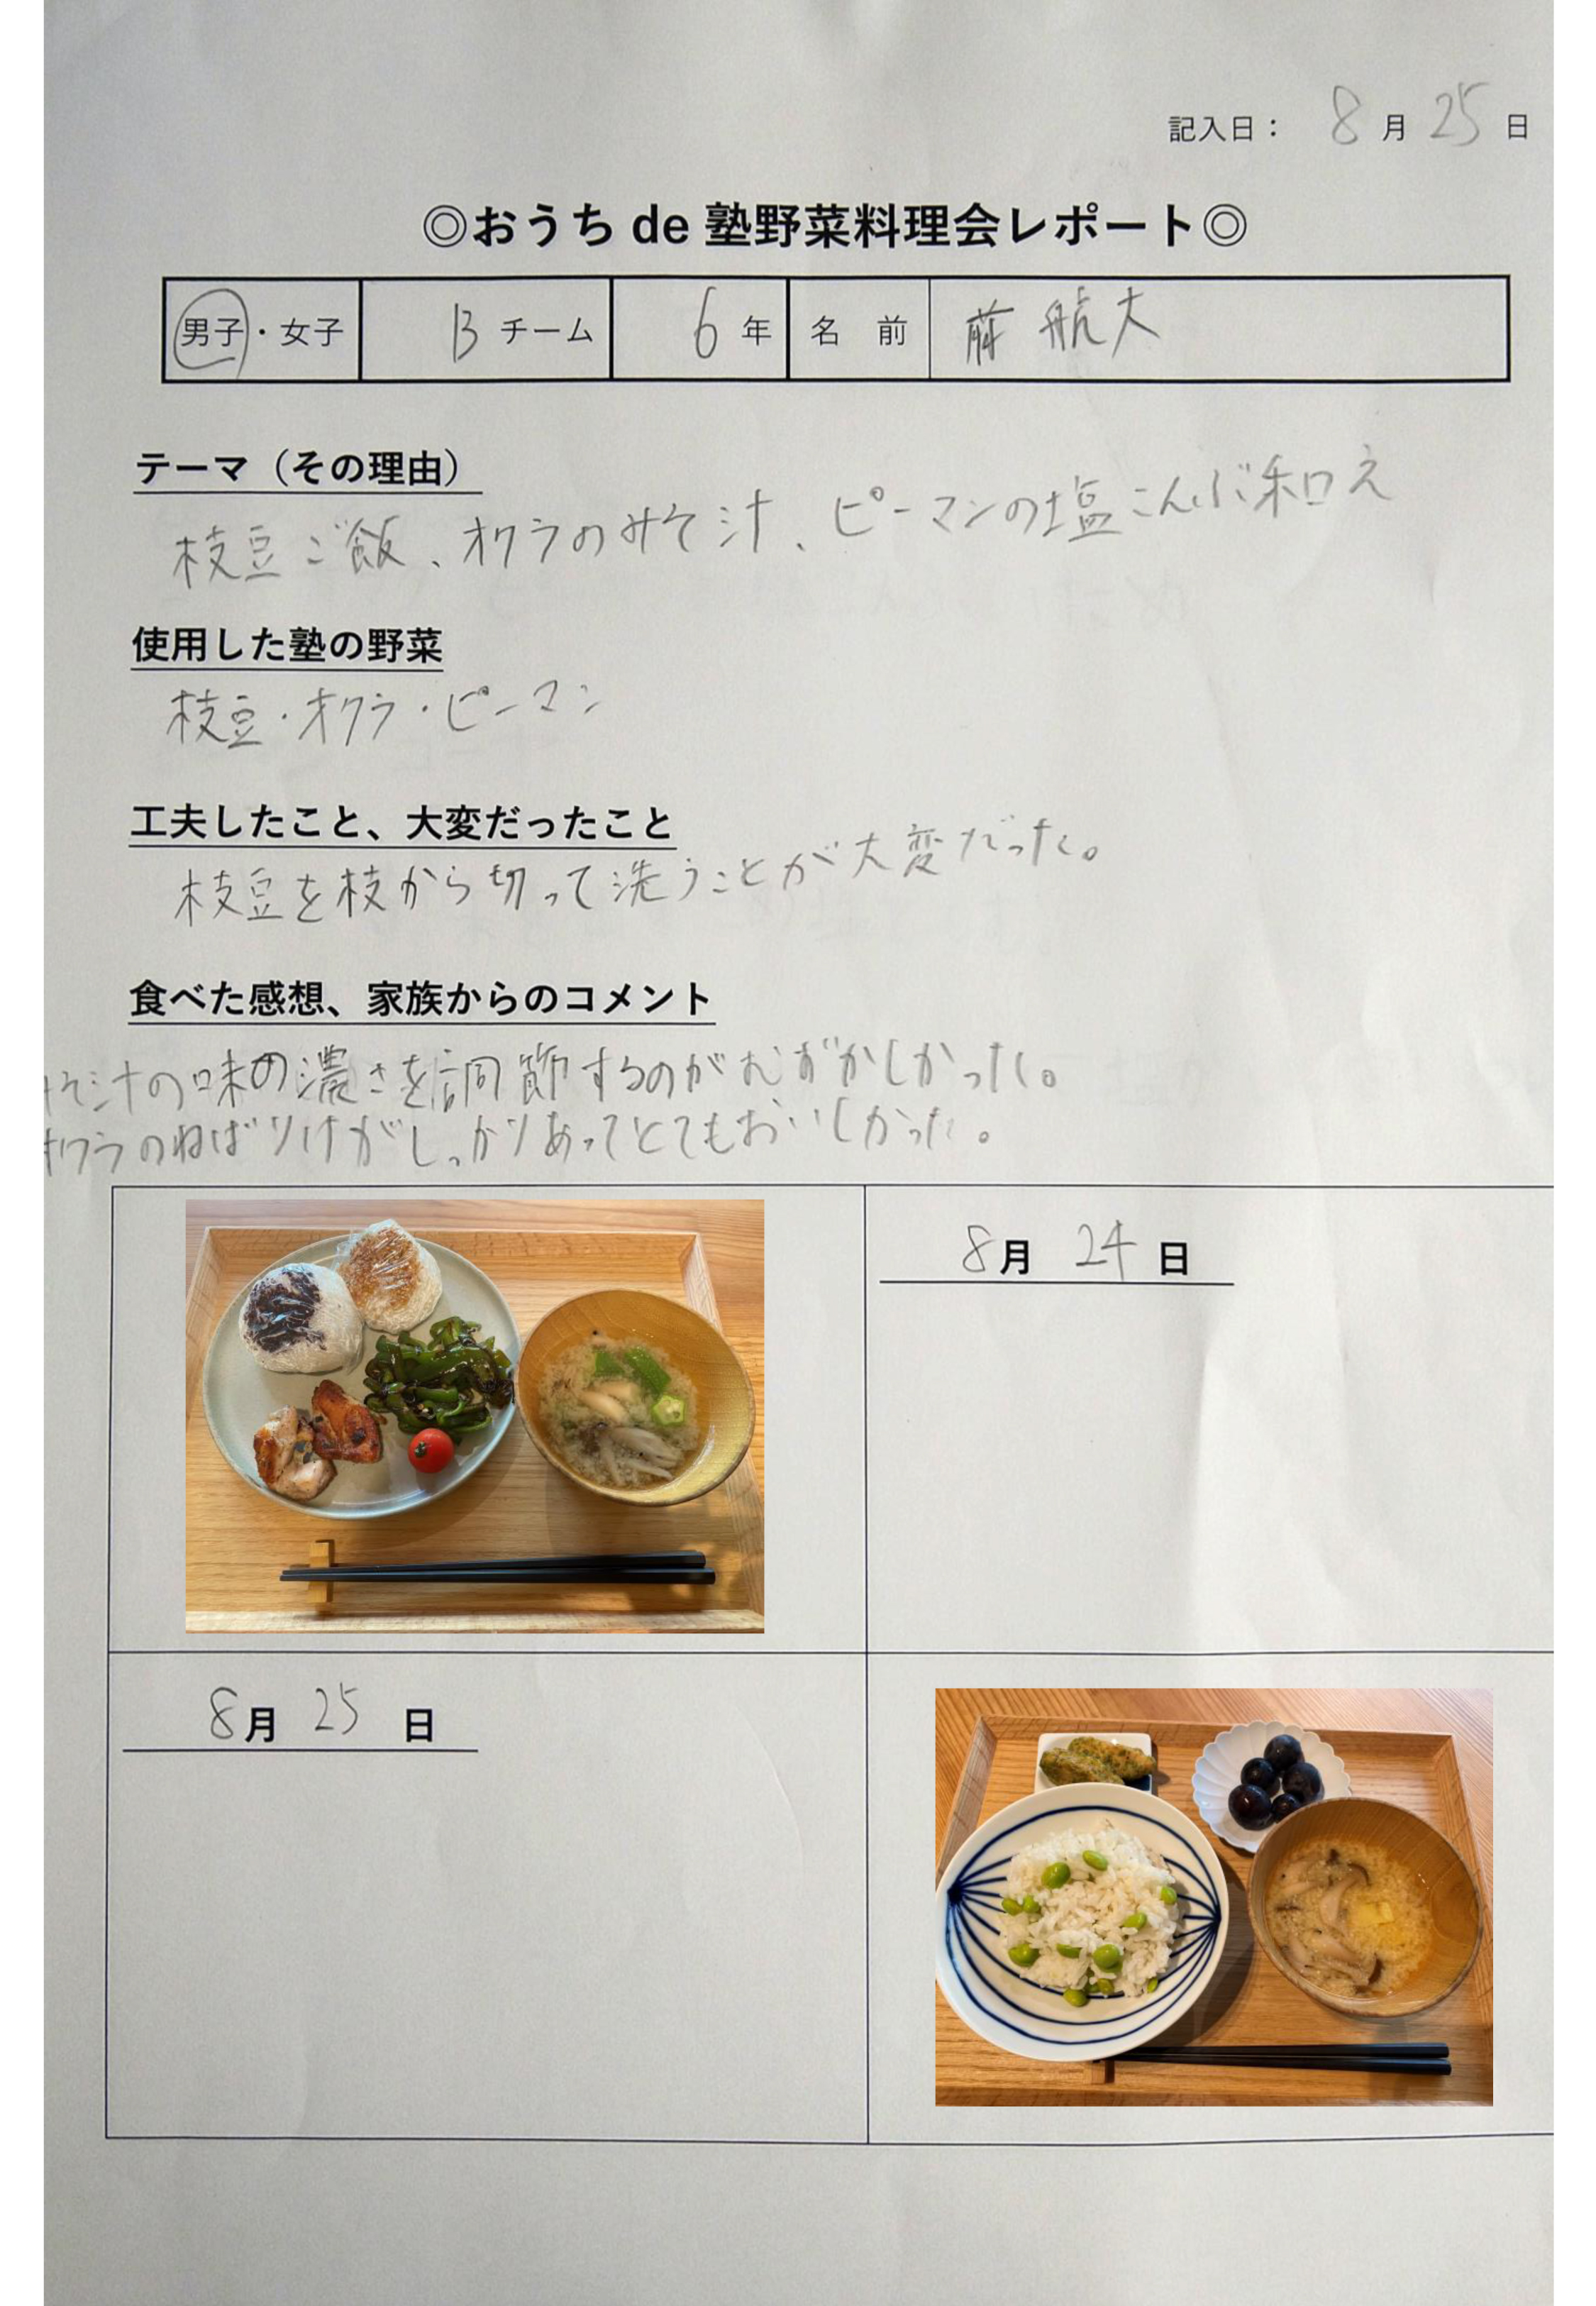 記入日： 8月25日
◎おうち de 塾野菜料理会レポート◎
男子・女子 Bチーム 6年 名前 蔀 航大
テーマ（その理由）
枝豆ご飯、オクラのみそ汁、ピーマンの塩こんぶ和え
使用した塾の野菜
枝豆・オクラ・ピーマン
工夫したこと、大変だったこと
枝豆を枝から切って洗うことが大変だった。
食べた感想、家族からのコメント
みそ汁の味の濃さを調節するのがむずかしかった。
オクラのねばりけがしっかりあってとてもおいしかった。
8月 24日
8月 25日